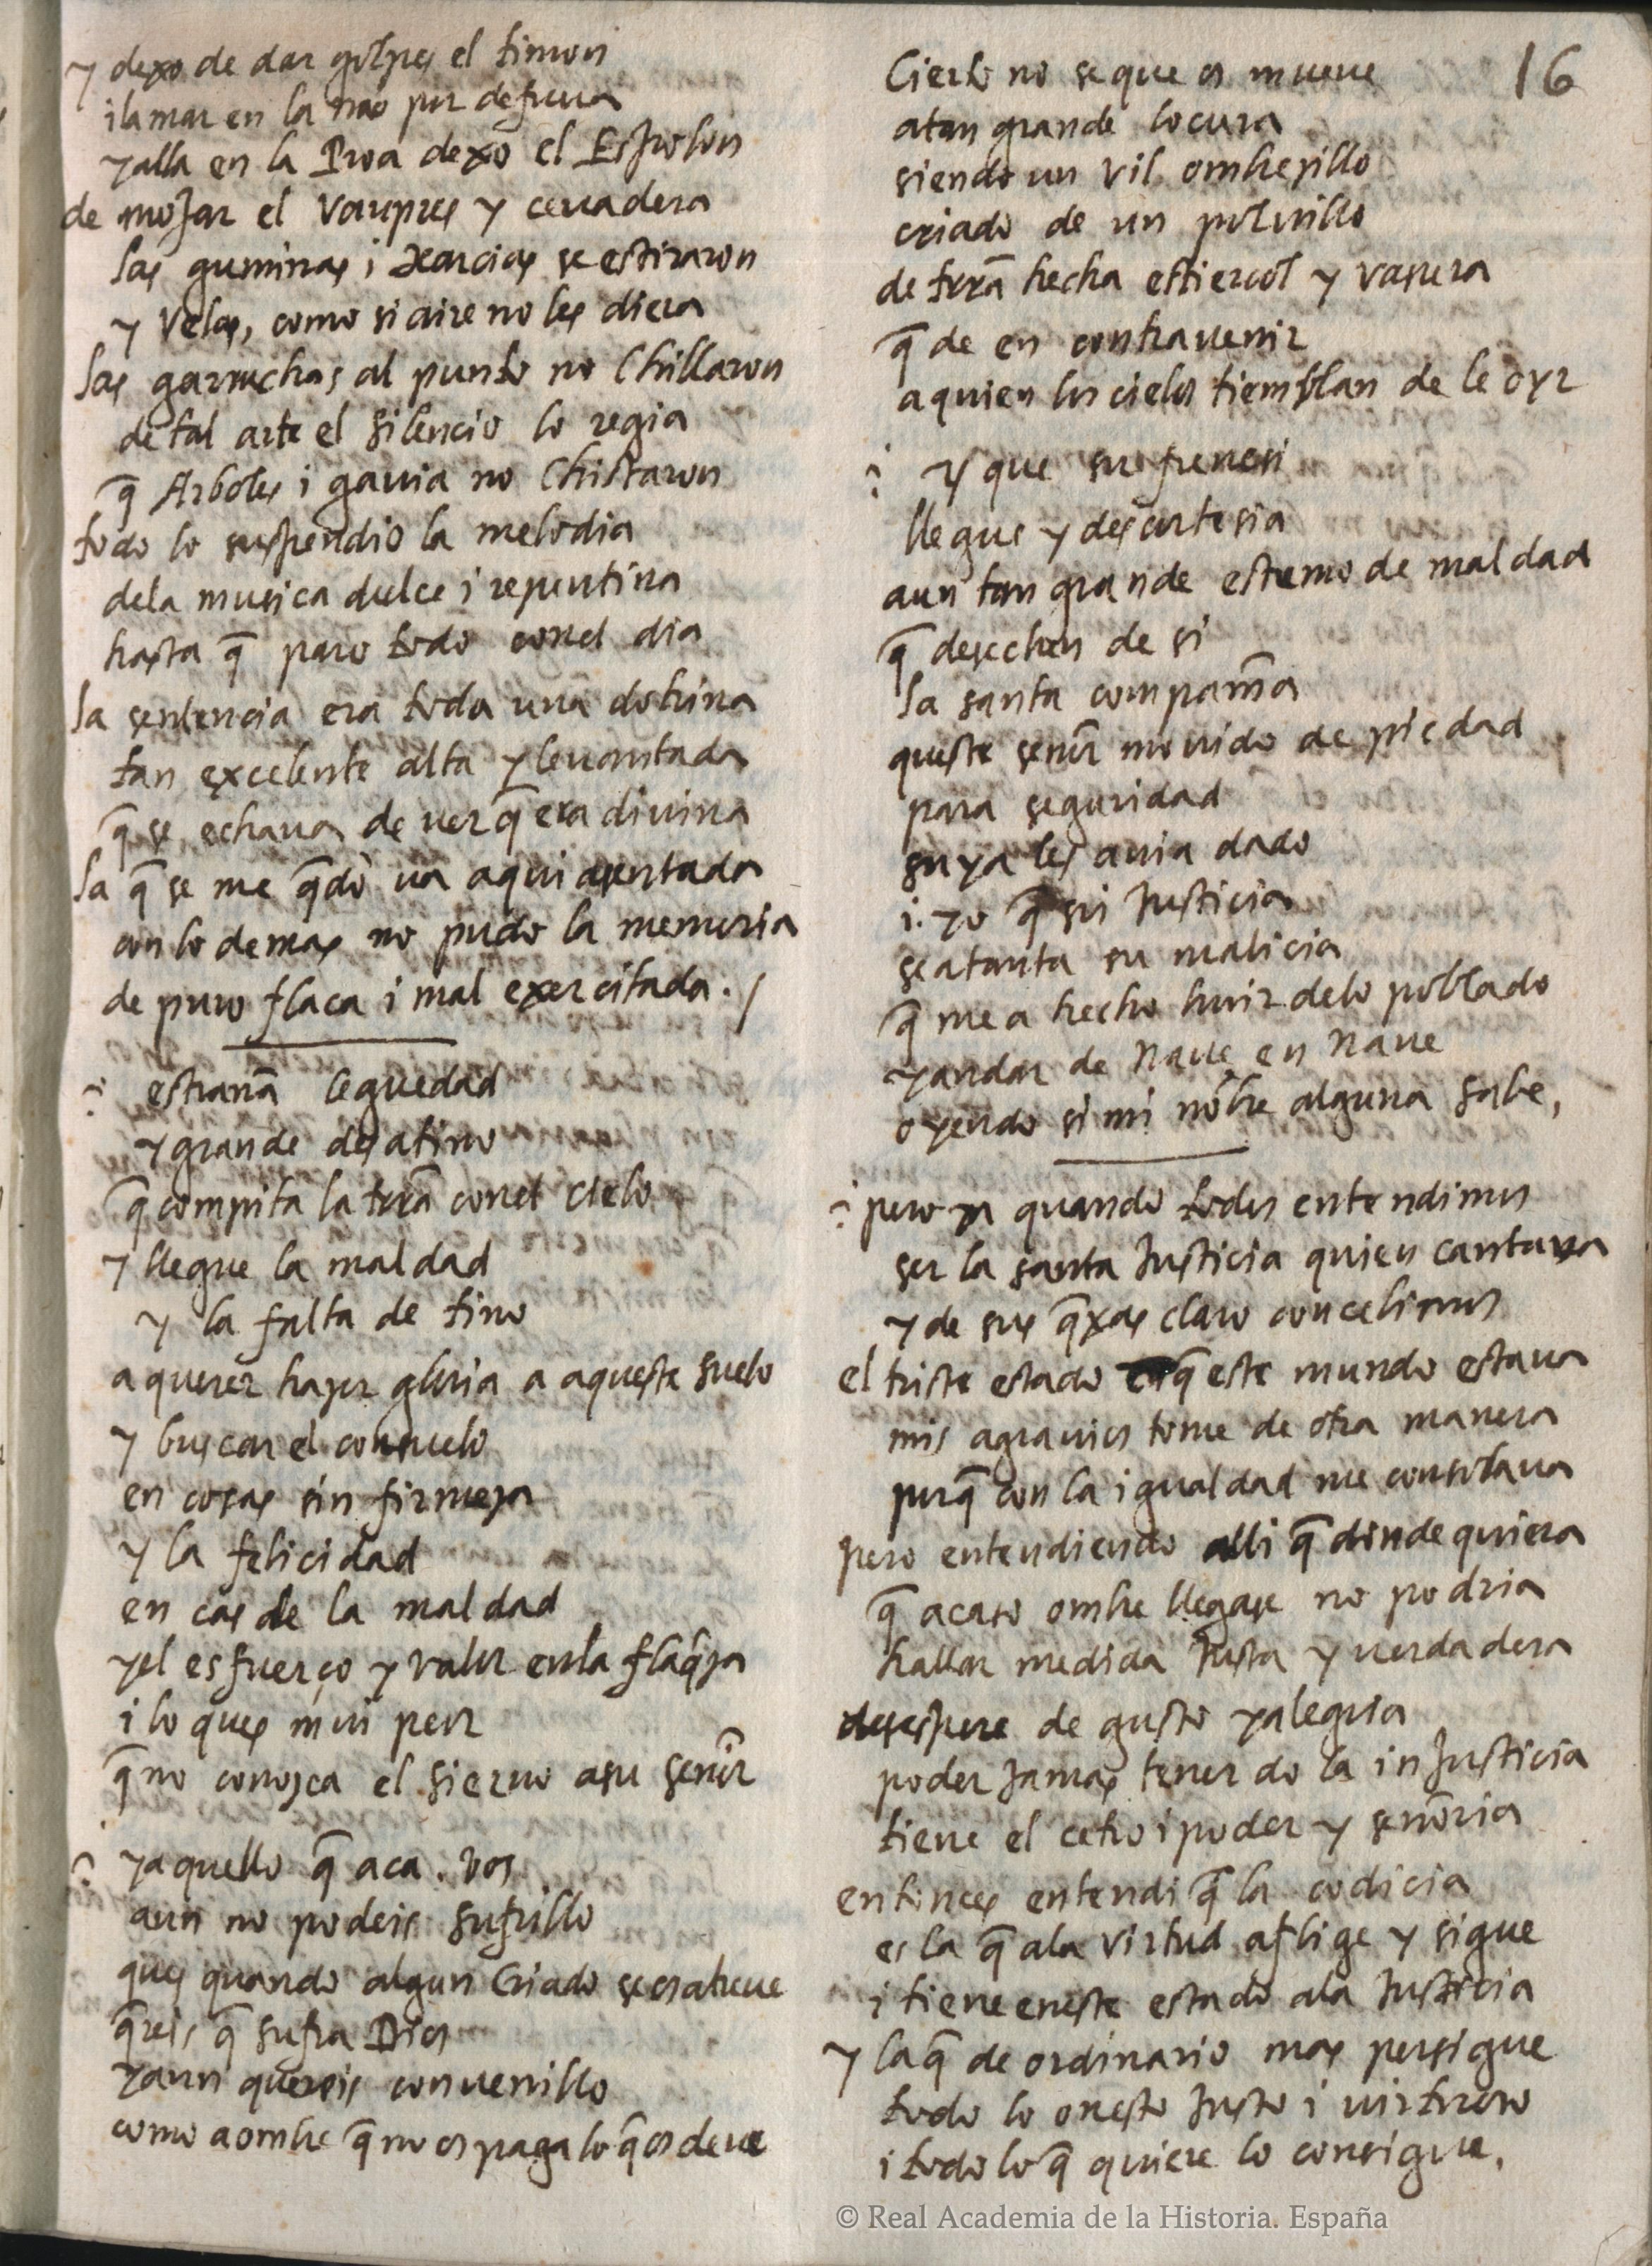 y dexo de dar golpes el timon
i la mar en la nao por defuera
y alla en la Proa dexo el Espolon
de mojar el Vaupres y cevadera
las guminas i Xarcias se estiraron
y Velas, como si aire no les diera
las garruchas al punto no Chillaron
de tal arte el silencio lo regia
q̄ Arboles i gavia no Chistaron
todo lo suspendio la melodia
dela musica dulce i repentina
hasta q̄ paro todo conel dia
la sentencia era toda una dotrina
tan excelente alta y levantada
q̄ se echava de ver q̄ era divina
la q̄ se me q̄dò va aqui asentada
con lo demas no pudo la memoria
de puro flaca i mal exercitada. /
estrana ceguedad
y grande desatino
q̄ compita la trrā conel cielo
y llegue la maldad
y la falta de tino
a querer hazer gloria a aqueste suelo
y buscar el consuelo
en cosas sin firmeza
y la felicidad
en cas de la maldad
y el esfuerço y valor en la flaq̄za
i lo ques mui peor
q̄ no conozca el siervo a su senōr
y aquello q̄ aca. vos
aun no podeis sufrillo
ques quando algun Criado se os atreve
q̄reis q̄ sufra Dios
y aun quereis convenillo
como a ombre q̄ no os paga lo q̄ os deve
16
Cierto no se que os mueve
a tan grande locura
siendo un vil ombrezillo
criado de un polvillo
de trrā hecha estiercol y vasura
q̄ de en contravenir
a quien los cielos tiemblan de le oyr
y que su frenesi
llegue y descortesia
a un tan grande estremo de maldad
q̄ desechen de si
la santa companīa
queste senōr movido de piedad
para seguridad
suya les avia dado
i. yo q̄ soi Justicia
se atanta su malicia
q̄ me a hecho huir delo poblado
y andar de Nave en Nave
oyendo si mi nōbre alguna sabe,
pero ya quando todos entendimos
ser la santa Justicia quien cantava
y de sus q̄xas claro concebimos
el triste estado en q̄ este mundo estava
mis agravios tome de otra manera
porq̄ con la igualdad me consolava
pero entendiendo alli q̄ donde quiera
q̄ acaso ombre llegase no podria
hallar medida Justa y verdadera
desespere de gusto y alegria
poder Jamas tener do la inJusticia
tiene el cetro i poder y senōria
entonces entendi q̄ la codicia
es la q̄ ala virtud aflige y sigue
i tiene eneste estado ala Justicia
y la q̄ de ordinario mas persigue
todo lo onesto Justo i virtuoso
i todo lo q̄ quiere lo consigue,
© Real Academia de la Historia. España